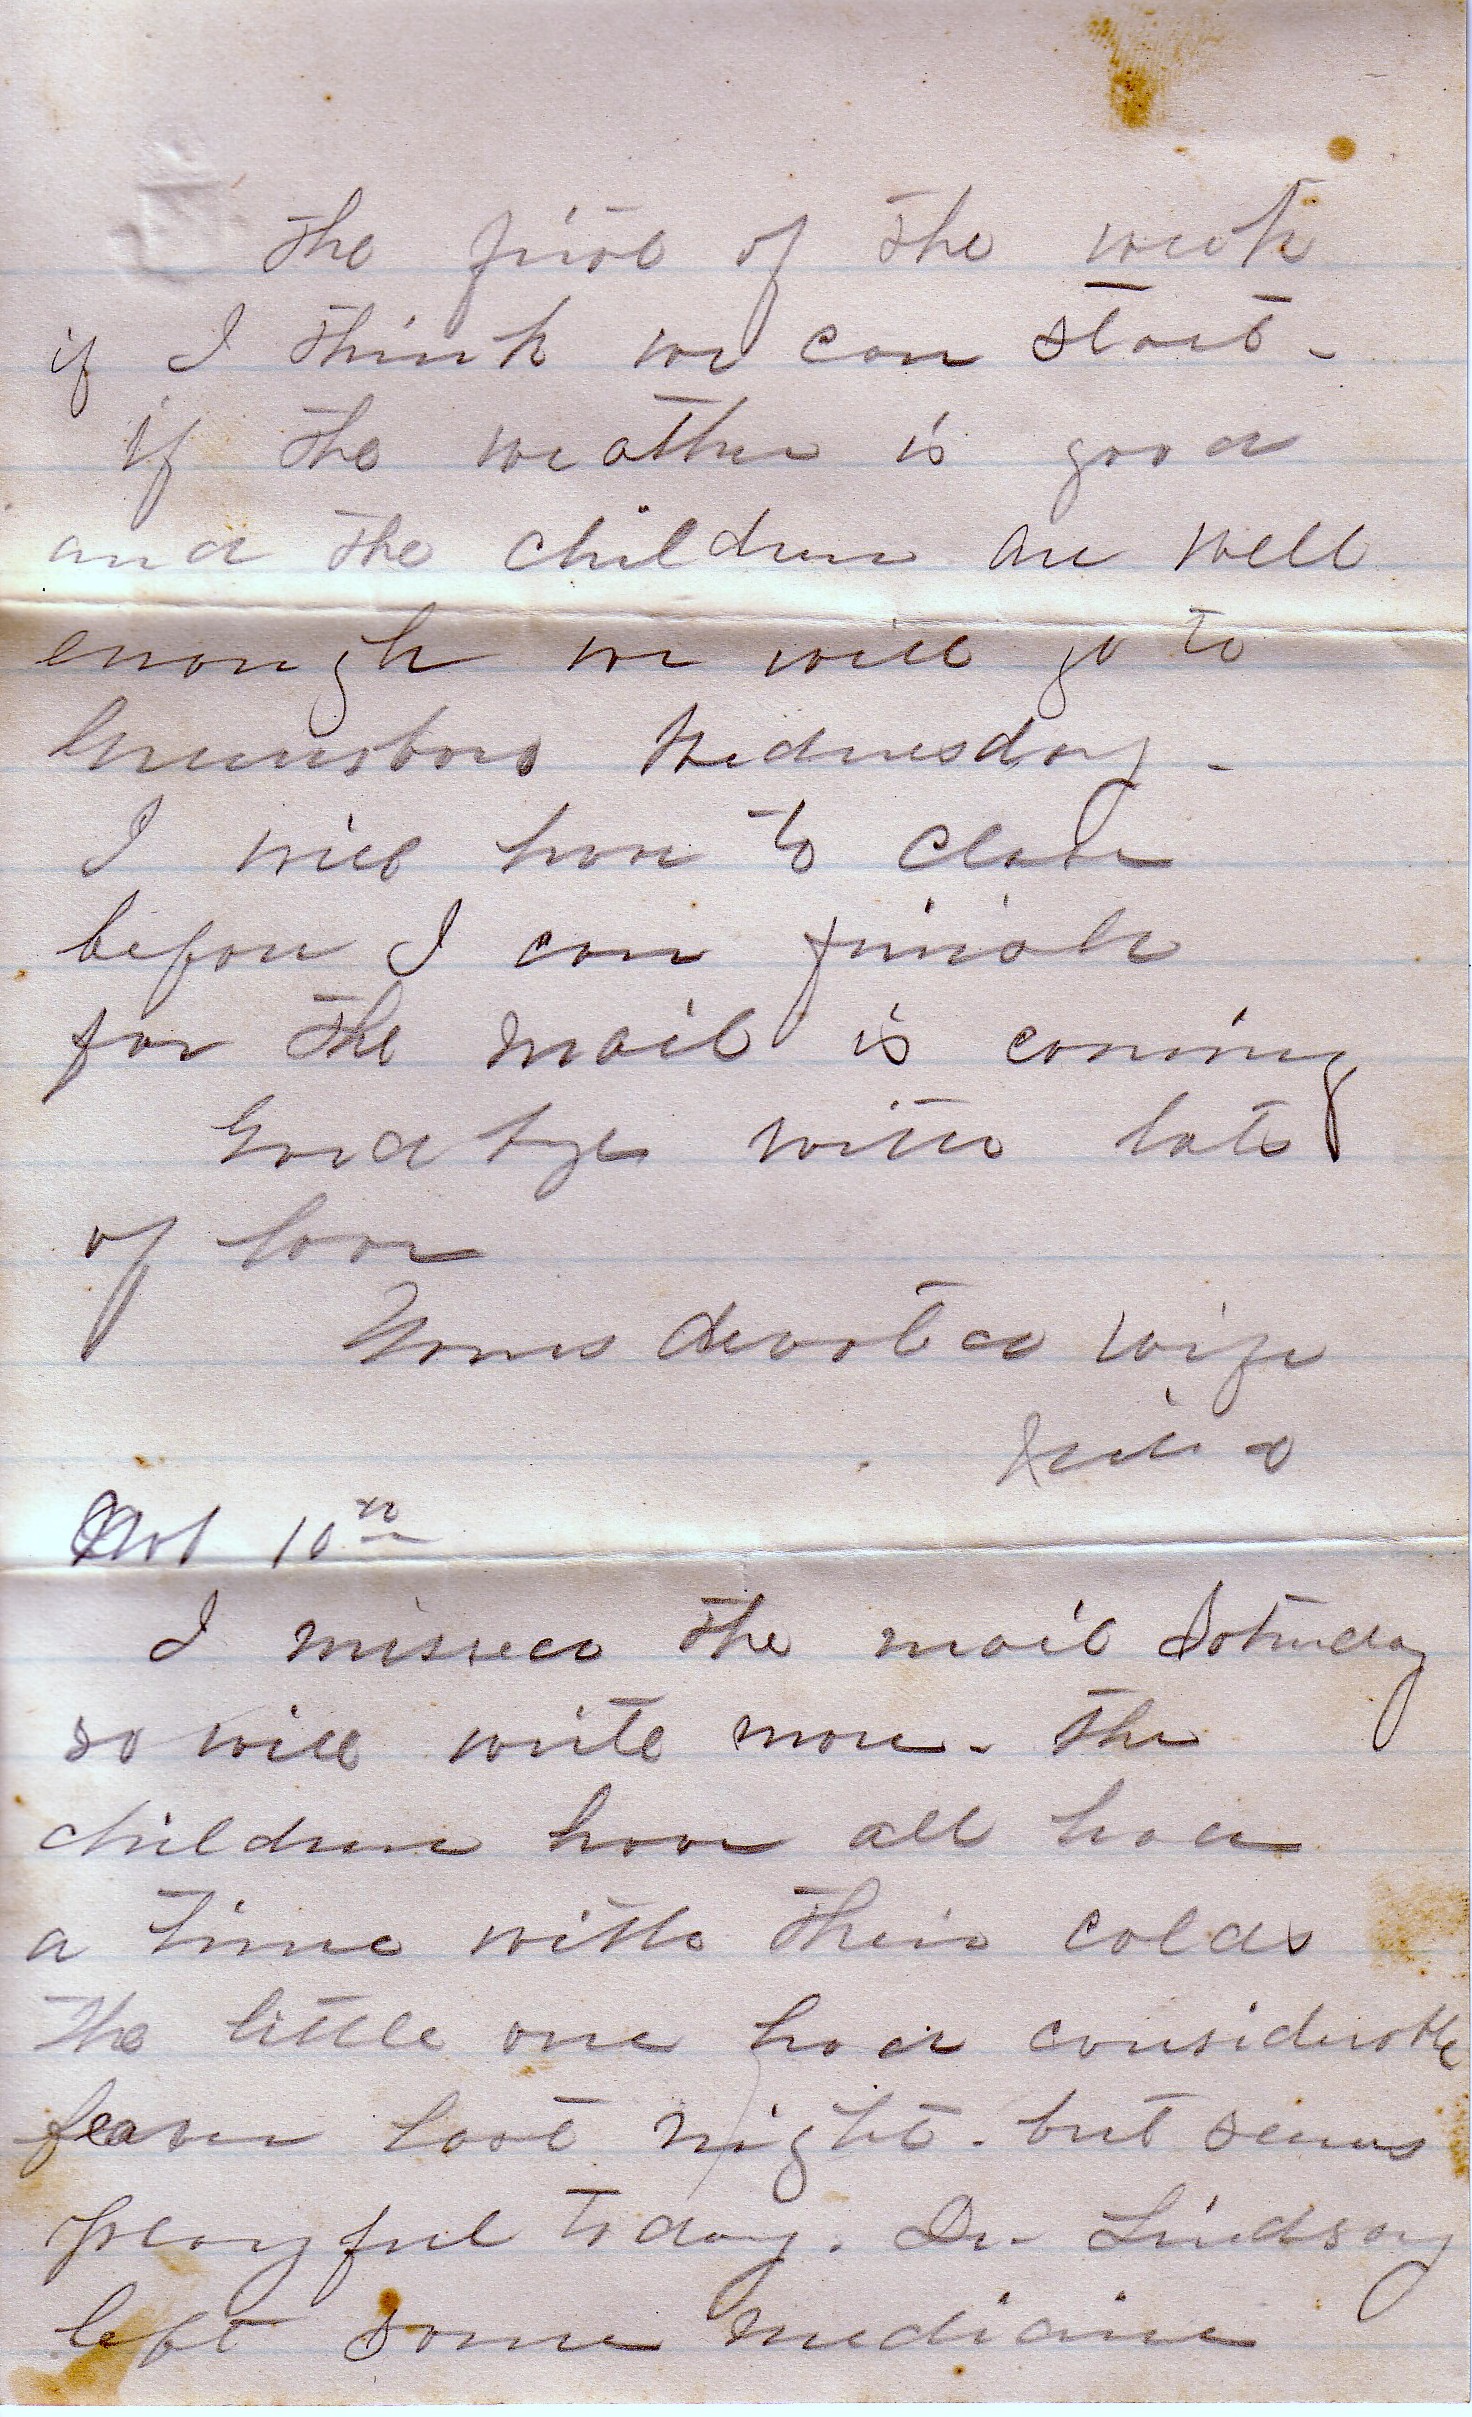 the first of the week
if I think we can start -
if the weather is good
and the children are well
enough we will go to
Greensboro Wednesday -
I will have to close
before I can finish
for the mail is coming
Good bye with lots
of love
Yours devoted wife
10th
I missed the mail Saturday
so will write more - The
children have all had
a time with their colds
the little one had considerable
feaver last night - but seems
playful today. Dr. Lindsay
left some medicine